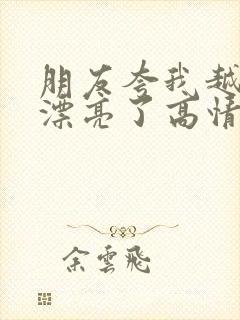 朋友夸我越
漂亮了高情
余雲飛